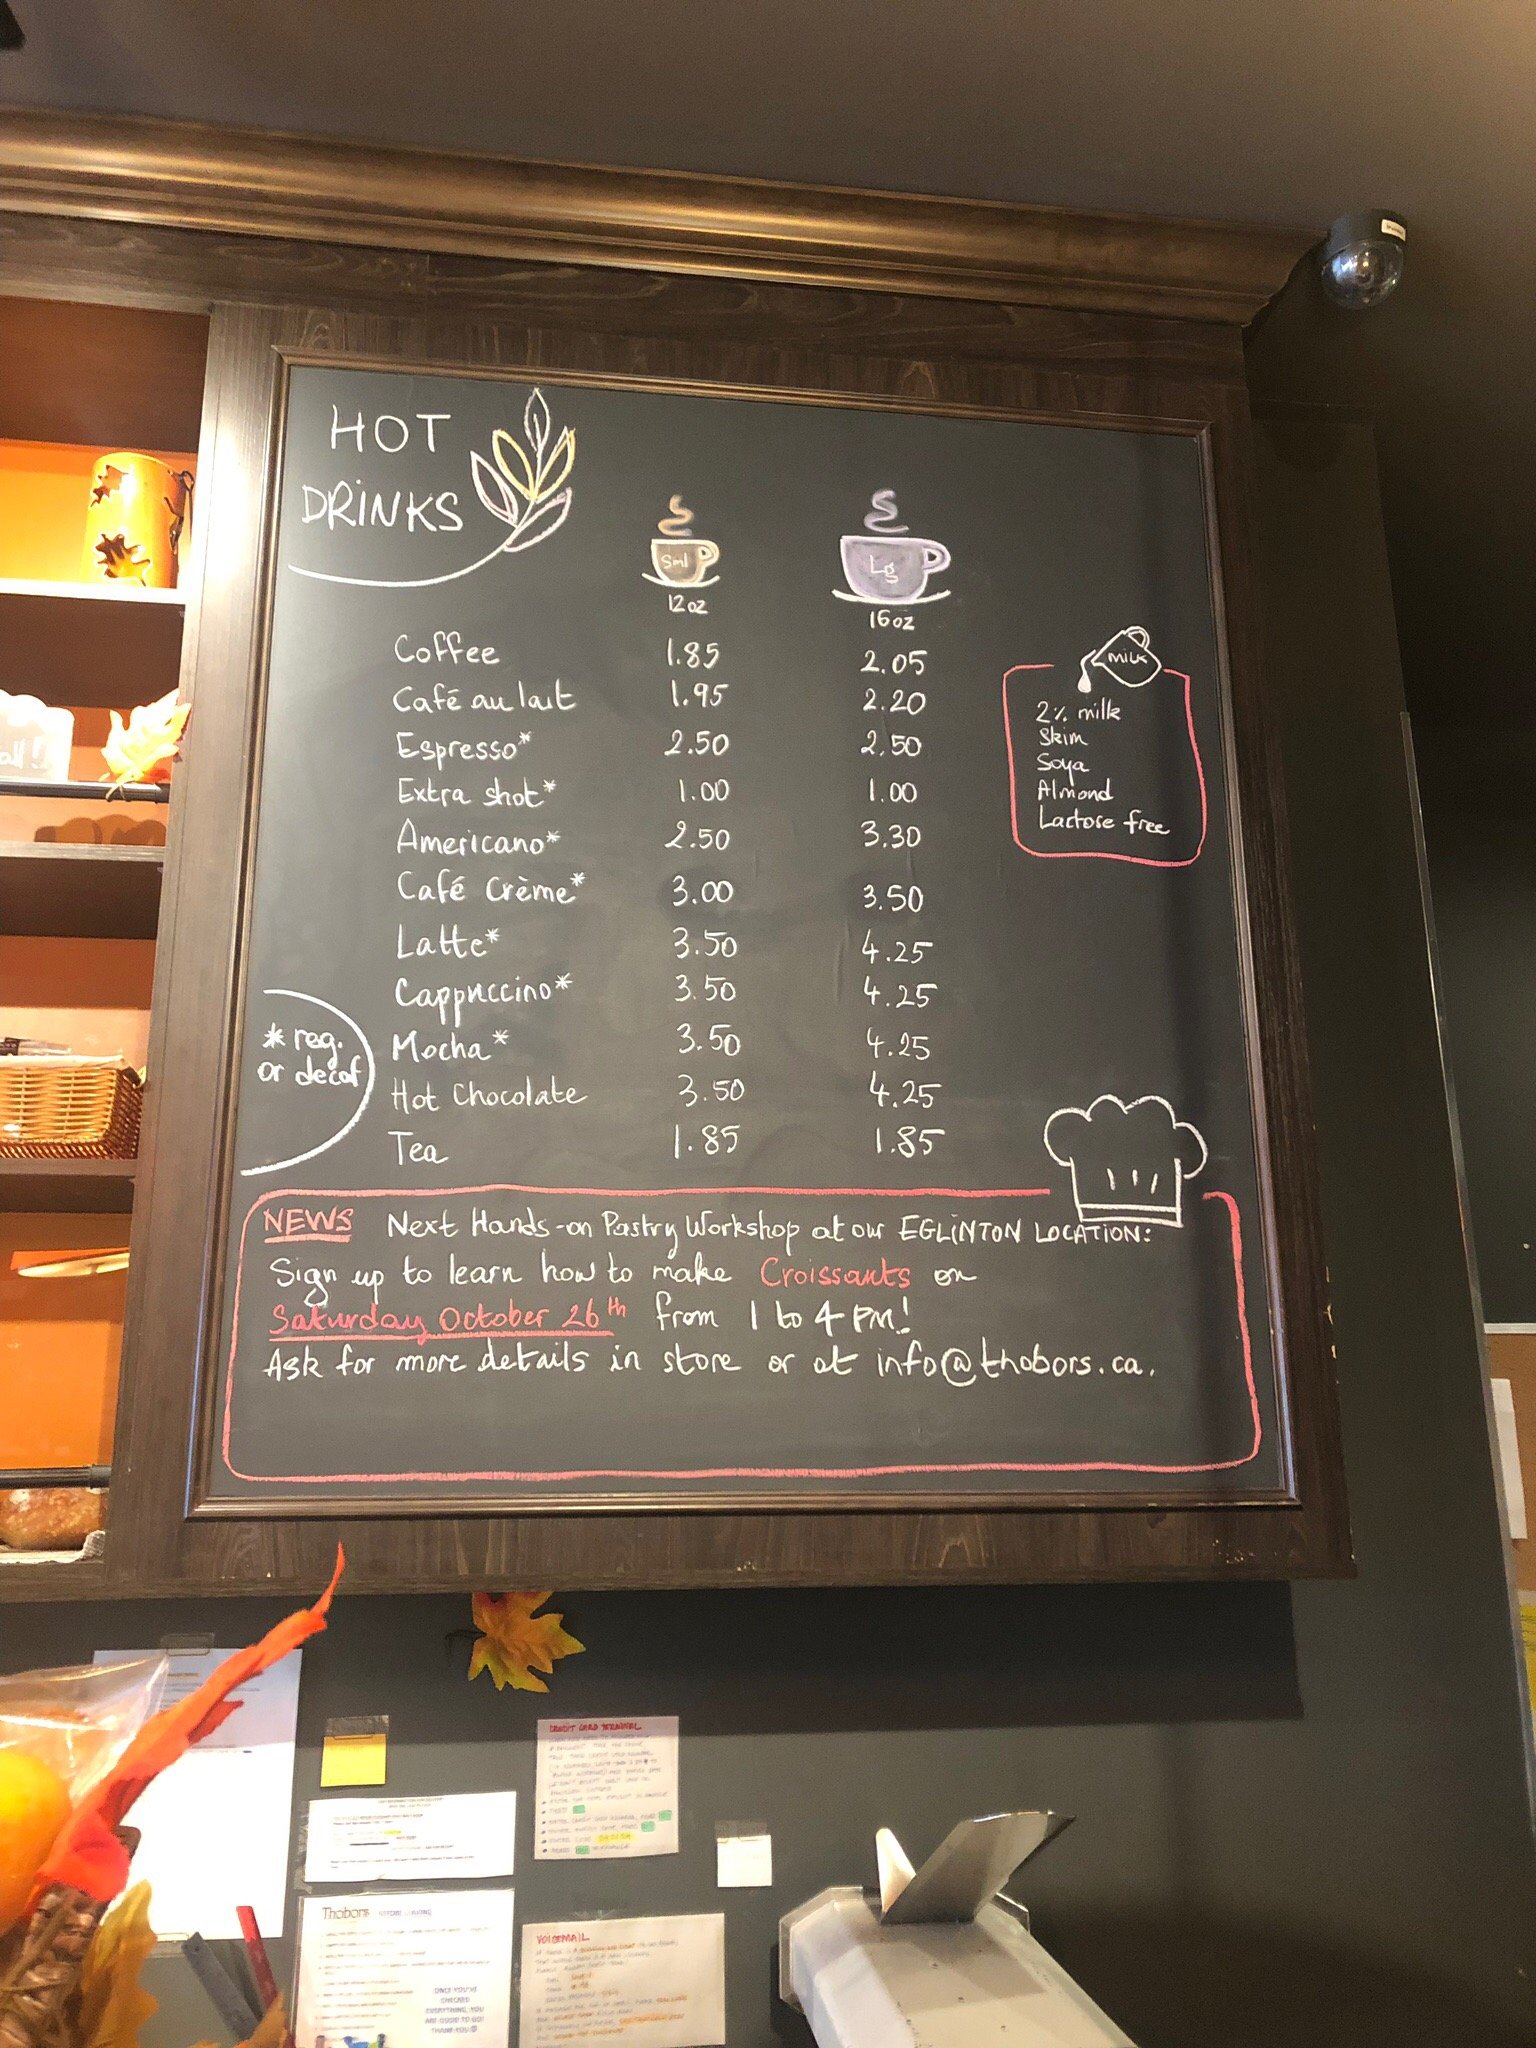 HOT
DRINKS
Sml
Lg
12oz
16oz
Coffee 1.85 2.05
Café au lait 1.95 2.20
Espresso* 2.50 2.50
Extra shot* 1.00 1.00
Americano* 2.50 3.30
Café Crème* 3.00 3.50
Latte* 3.50 4.25
Cappuccino* 3.50 4.25
Mocha* 3.50 4.25
Hot Chocolate 3.50 4.25
Tea 1.85 1.85
milk
2% milk
Skim
Soya
Almond
Lactose free
* reg.
or decaf
NEWS Next Hands-on Pastry Workshop at our EGLINTON LOCATION:
Sign up to learn how to make Croissants on
Saturday October 26th from 1 to 4 PM!
Ask for more details in store or at info@thobors.ca.
CREDIT CARD TERMINAL
Thobors
VOICEMAIL
ONCE YOU'VE
CHECKED
EVERYTHING, YOU
ARE GOOD TO GO!
THANK YOU